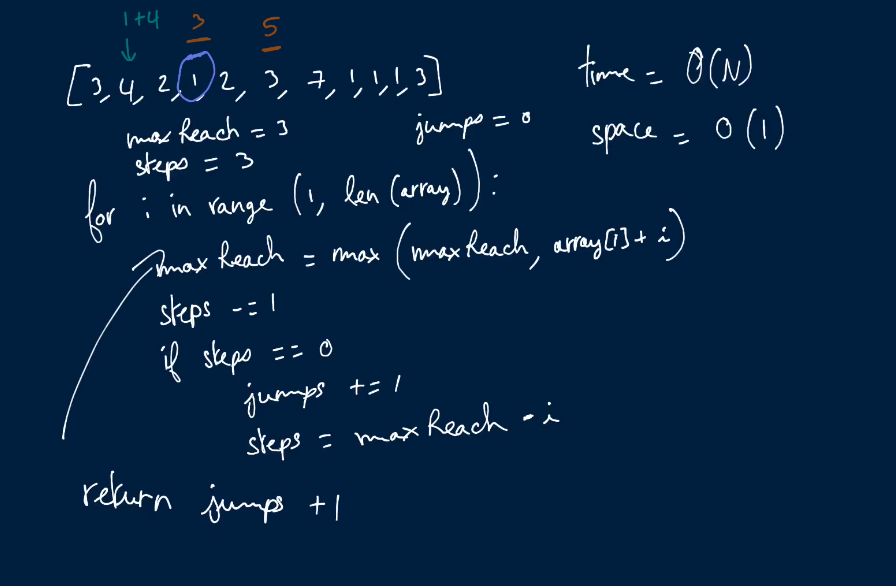 1+4 3 5
[3, 4, 2, 1 2, 3, 7, 1, 1, 1, 3]
time = O(N)
maxReach = 3
jumps = 0
space = O(1)
steps = 3
for i in range (1, len(array)):
maxReach = max (maxReach, array[i]+i)
steps -= 1
if steps == 0
jumps += 1
steps = maxReach - i
return jumps +1